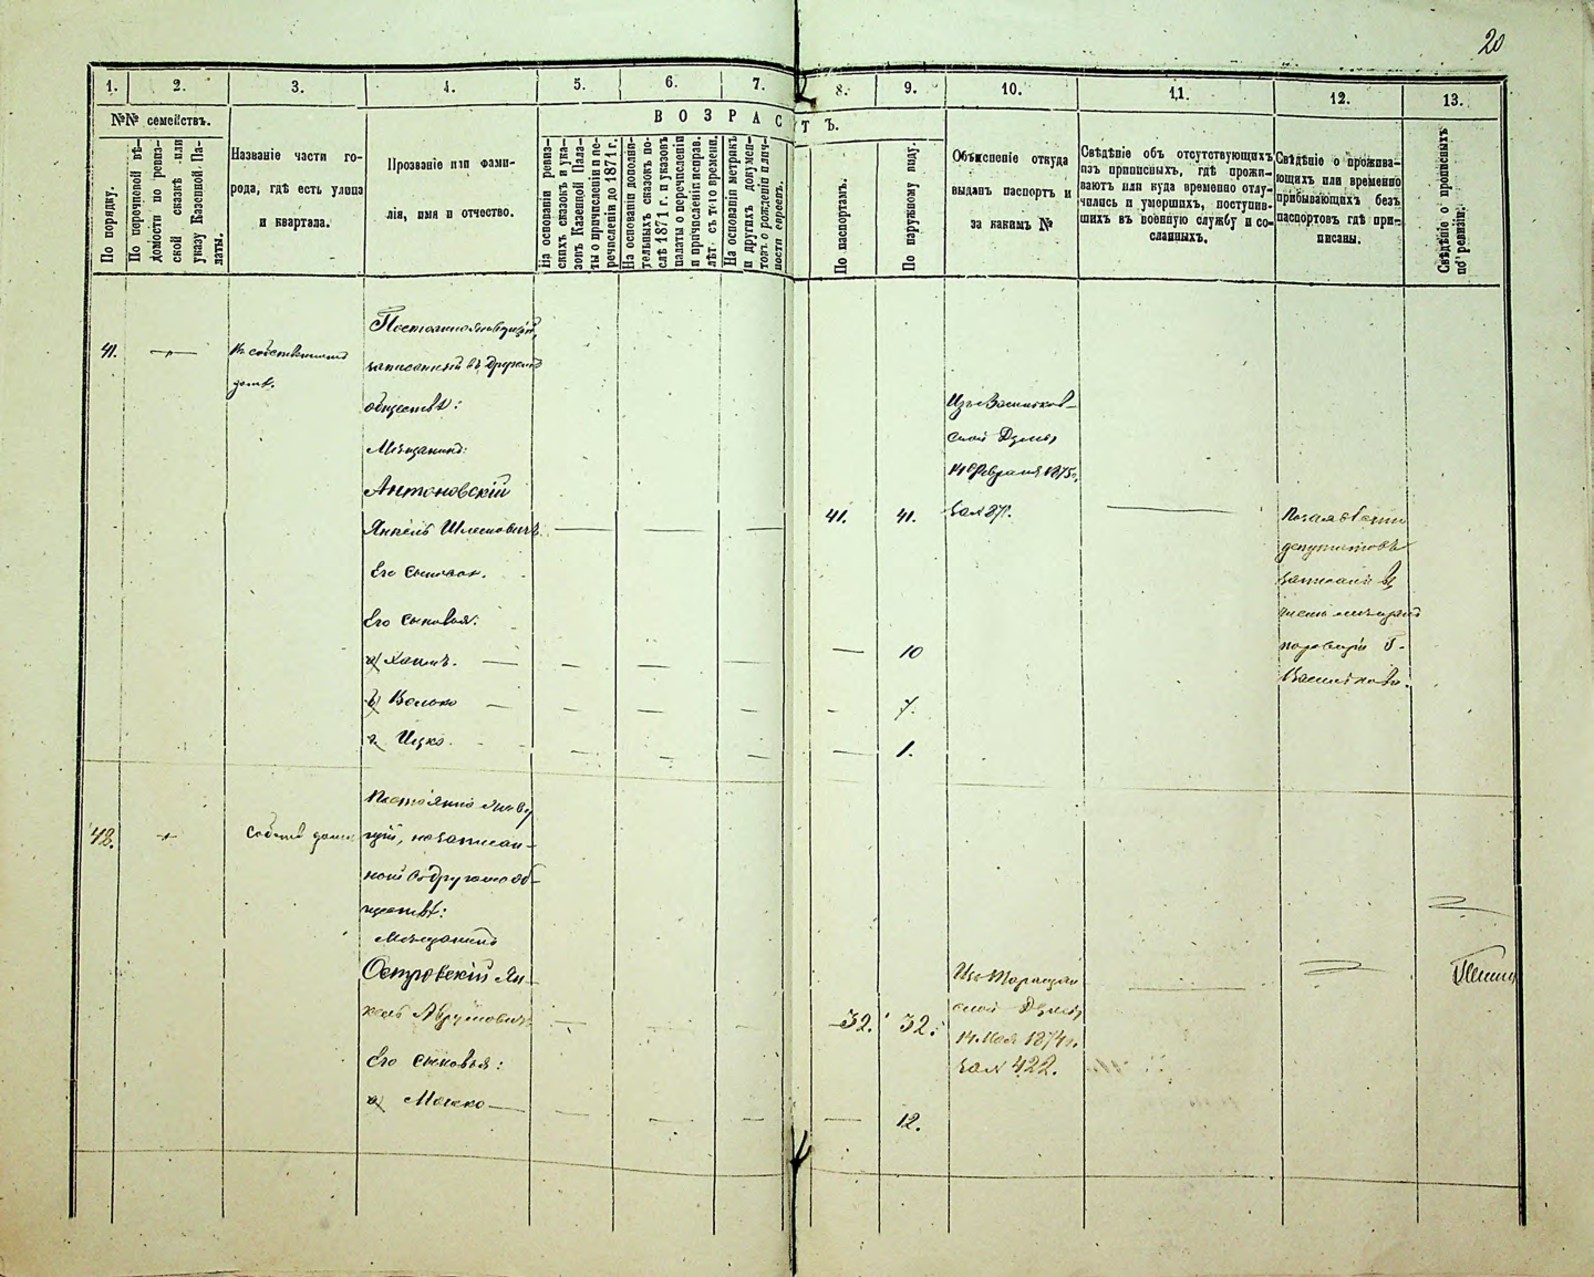 20
1. 2. 3. 4. 5. 6. 7. 8. 9. 10. 11. 12. 13.
№№ семействъ.
По порядку.
По поречневой вѣ-
домости по ревиз-
ской сказкѣ или
указу Казенной Па-
латы.
Названіе части го-
рода, гдѣ есть улица
и квартала.
Прозваніе или фами-
лія, имя и отчество.
ВОЗРАСТЪ.
На основаніи ревиз-
скихъ сказокъ и ука-
зовъ Казенной Пала-
ты о причисленіи и пе-
речисленіи до 1871 г.
На основаніи дополни-
тельныхъ сказокъ по-
слѣ 1871 г. и указовъ
палаты о перечисленіи
и причисленіи исправ.
лѣт съ того времени.
На основаніи метрикъ
и другихъ докумен-
товъ о рожденіи и лич-
ности евреевъ.
По паспортамъ.
По наружному виду.
Объясненіе откуда
выданъ паспортъ и
за какимъ №
Свѣдѣніе объ отсутствующихъ
изъ приписныхъ, гдѣ прожи-
ваютъ или куда временно отлу-
чились и умершихъ, поступив-
шихъ въ военную службу и со-
сланныхъ.
Свѣдѣніе о прожива-
ющихъ или временно
прибывающихъ безъ
паспортовъ гдѣ при-
писаны.
Свѣдѣніе о прописныхъ
по ревизіи.
41.
въ собственномъ
домѣ.
Постоянно живущій,
записанный въ другомъ
обществѣ:
Мѣщанинъ:
Антоновскій
Янкель Шлемовичъ
41. 41.
Изъ Васильков-
ской Думы
14 Февраля 1875 г.
за №
депутатовъ
Его сыновья:
а) Хаимъ. 10
б) 7.
в) Ицко. 1.
42.
Собств домъ
Постоянно живу
щій, но записан-
ной въ другомъ об-
ществѣ:
Мѣщанинъ
Островскій Ян-
кель Аврумовичъ
32. 32.
Изъ Таращан
ской Думы
14 Мая 1874 г.
за № 422.
Его сыновья:
а) Мошко 12.